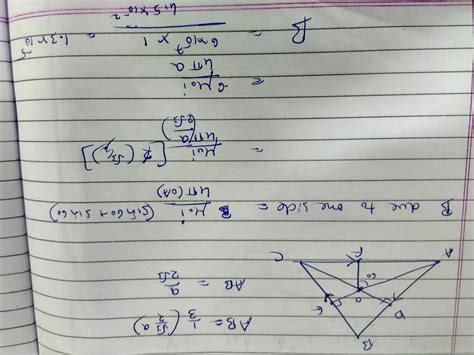 B
D E
O
60
A F C
AB = 1/3 (√3/2 a)
AB = a/2√3
B due to one side = μ₀i/4π(OA) (sin60 + sin60)
= μ₀i/4π(a/2√3) [2(√3/2)]
= 6μ₀i/4πa
B = 6×10⁻⁷ × 1/4.5×10⁻² = 1.3×10⁻⁵